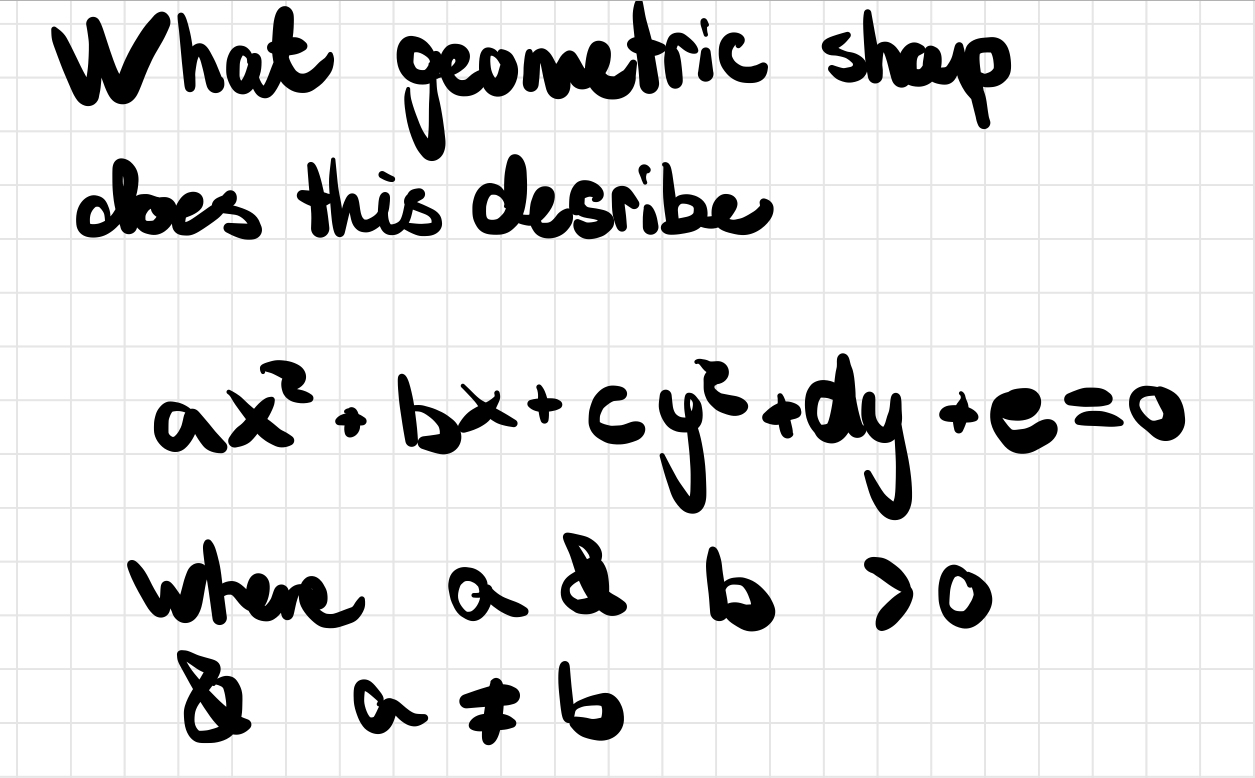 What geometric shap
does this desribe
ax² + bx + cy² + dy + e = 0
where a & b > 0
& a ≠ b